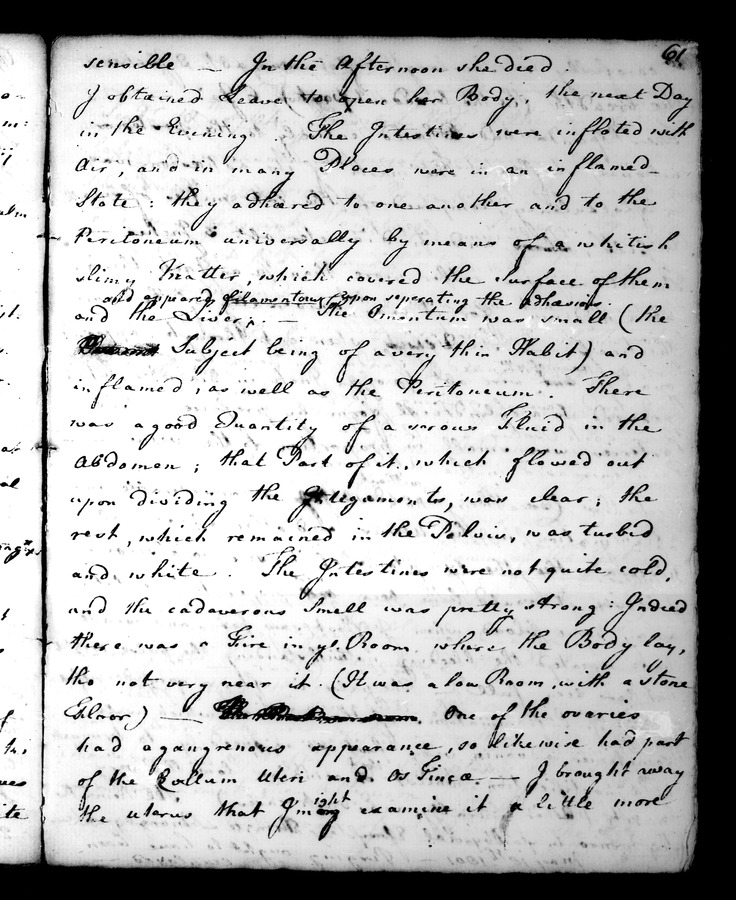 61
sensible — In the Afternoon she died.
I obtained Leave to open her Body, the next Day
in the Evening. The Intestines were inflated with
Air, and in many Places were in an inflamed
State: they adhered to one another and to the
Peritoneum universally by means of a whitish
slimy Matter, which covered the Surface of them
and appeared filamentous upon seperating the adhesions.
and the Liver; — The Omentum was small (the
Subject being of a very thin Habit) and
inflamed, as well as the Peritoneum. There
was a good Quantity of a serous Fluid in the
Abdomen; that Part of it, which flowed out
upon dividing the Integaments, was clear; the
rest, which remained in the Pelvis, was turbid
and white. The Intestines were not quite cold,
and the cadaverous Smell was pretty strong: Indeed
there was a Fire in ye. Room where the Body lay,
tho not very near it. (It was a low Room, with a stone
Floor) — One of the ovaries
had a gangrenous appearance, so likewise had part
of the Collum Uteri and Os Tincæ. — I brought away
the uterus that I might examine it a little more